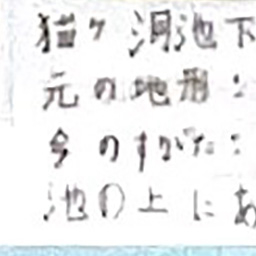 猫ケ洞池下
元の地形:
今のすがた:
池の上にあ